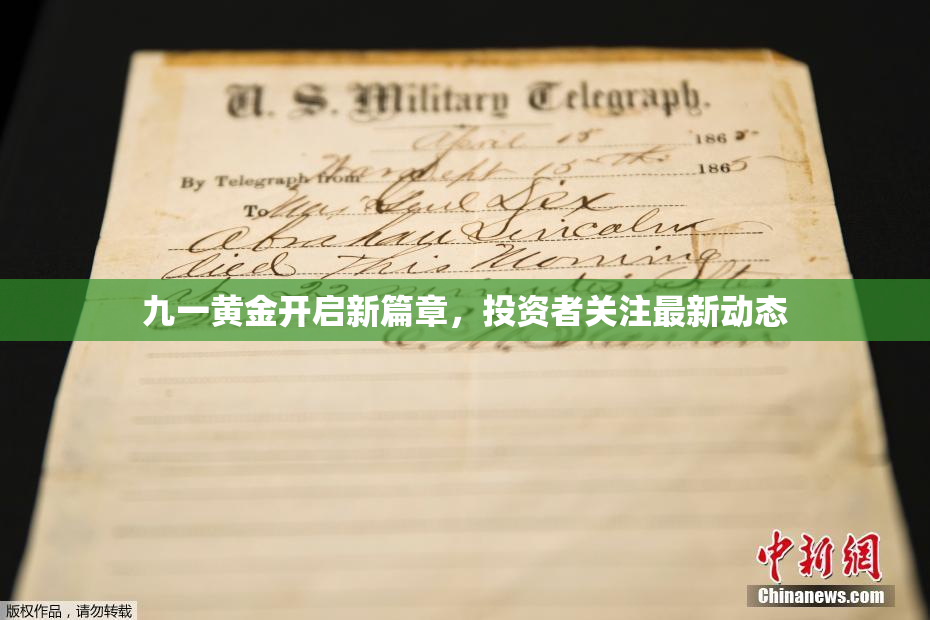 U. S. Military Telegraph.
April 15 1865
By Telegraph from War Dept 15th 1865
To Maj Genl Dix
Abraham Lincoln
died This Morning
at 22 minutes after
九一黄金开启新篇章，投资者关注最新动态
E. M. Stanton
中新网
Chinanews.com
版权作品，请勿转载